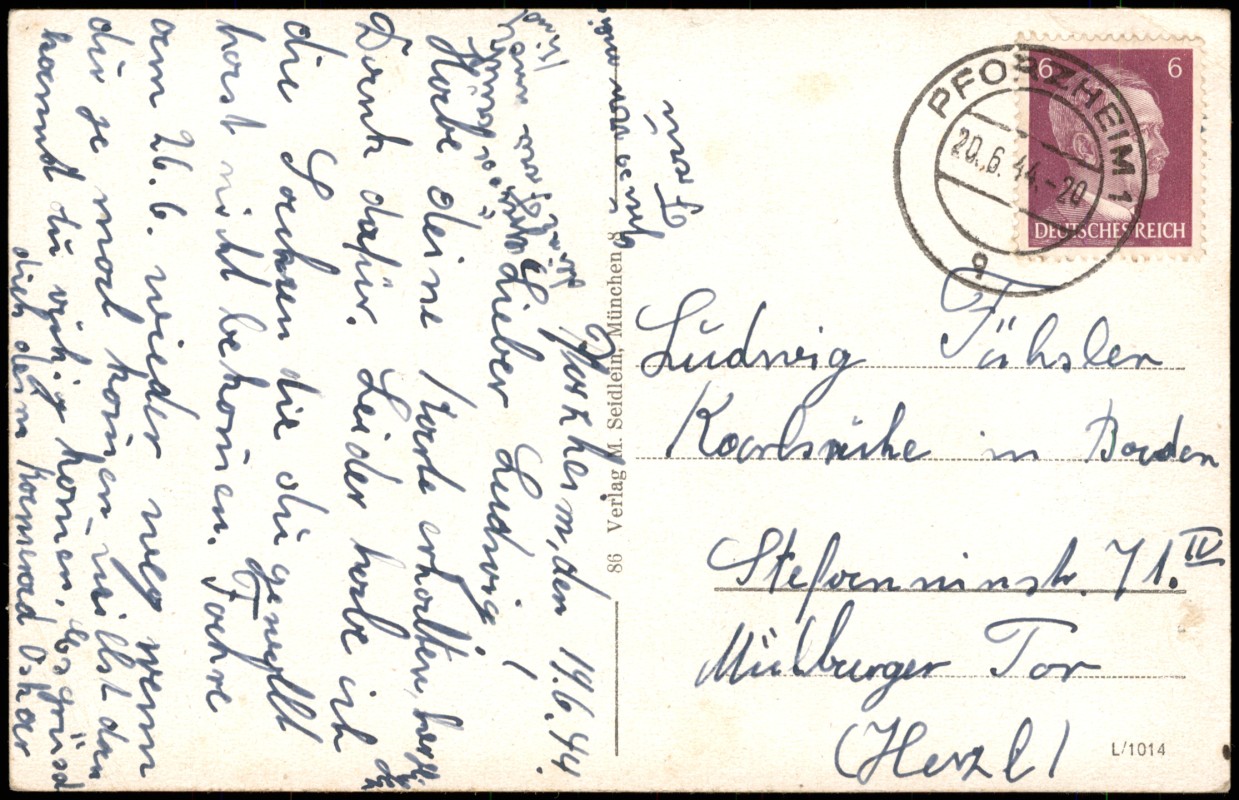 Pforzheim, den 19.6.44.
Lieber Ludwig!
Habe deine Karte erhalten, herzl.
Dank dafür. Leider habe ich
die Sachen die du gewollt
hast nicht bekomen. Fahre
am 26.6. wieder weg wenn
du je mal komen willst dan
kannst du ruhig komen. Es grüsst
dich dein Kamerad Oskar
PFORZHEIM 1
20.6.44.-20
a
6
6
DEUTSCHES REICH
Ludwig Fähsler
Karlsruhe in Baden
Stefanninstr. 71. IV
Mühlburger Tor
(Herzl)
86 Verlag M. Seidlein, München 8
L/1014